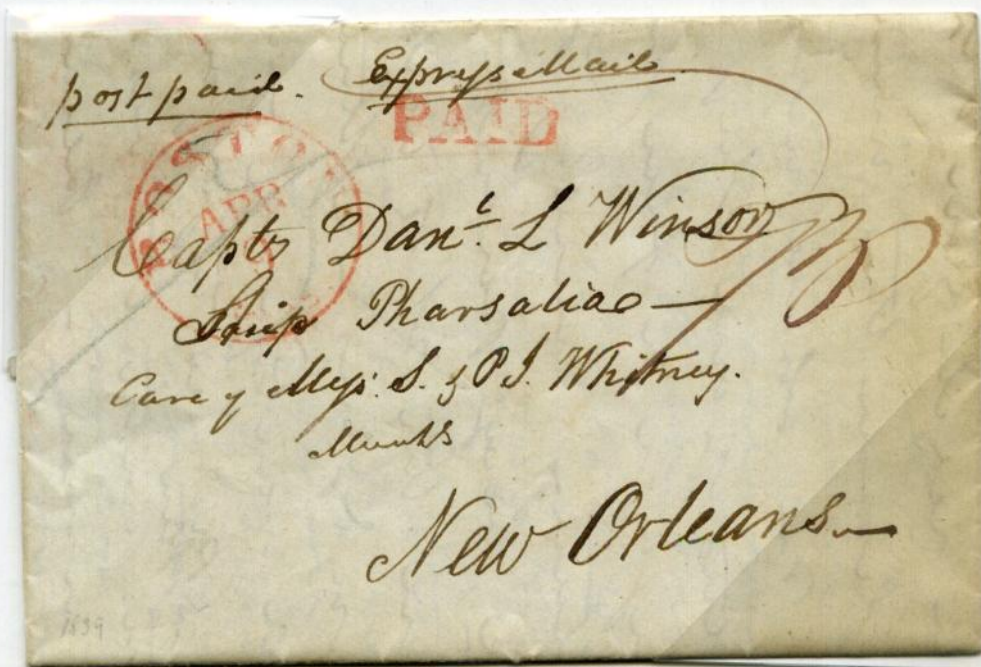 post paid. Express Mail
PAID
BOSTON
APR
Capt. Danl. L Winsor
Ship Pharsalia —
Care of Mess: S. & P. J. Whitney.
Merchts
New Orleans —
1839